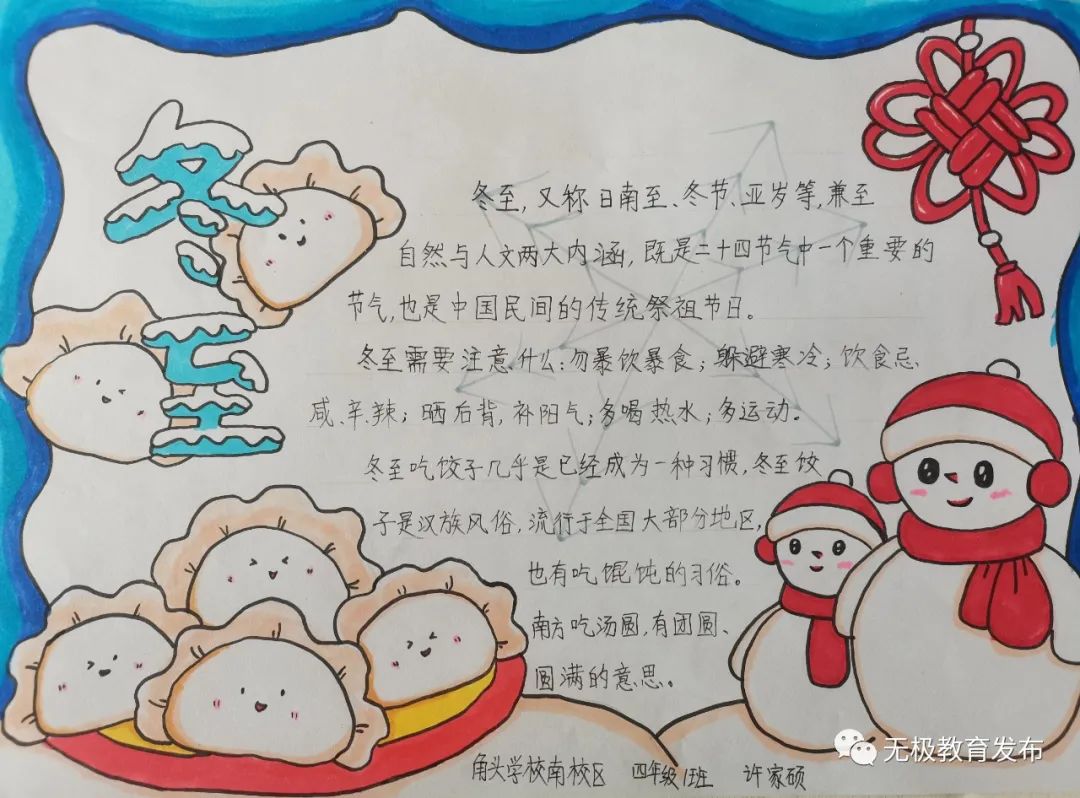 冬至
冬至,又称日南至、冬节、亚岁等,兼至
自然与人文两大内涵,既是二十四节气中一个重要的
节气,也是中国民间的传统祭祖节日。
冬至需要注意什么:勿暴饮暴食;躲避寒冷;饮食忌、
咸、辛、辣;晒后背,补阳气;多喝热水;多运动。
冬至吃饺子几乎是已经成为一种习惯,冬至饺
子是汉族风俗,流行于全国大部分地区,
也有吃馄饨的习俗。
南方吃汤圆,有团圆、
圆满的意思。
角头学校南校区 四年级1班 许家硕
无极教育发布